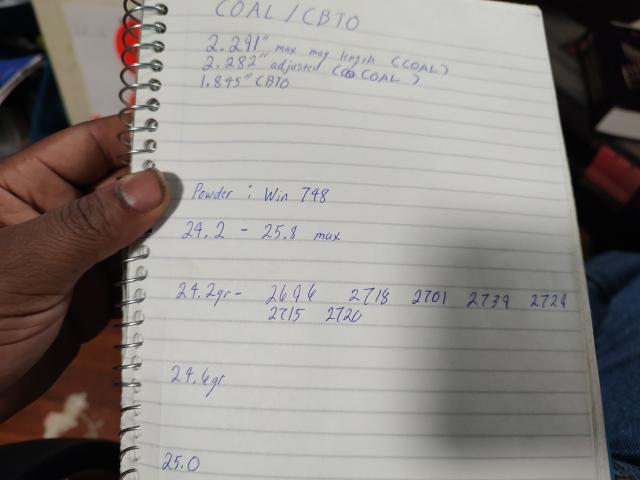 COAL / CBTO
2.291" max mag length (COAL)
2.282" adjusted (COAL)
1.895" CBTO
Powder : Win 748
24.2 - 25.8 max
24.2gr - 2696 2718 2701 2739 2724
2715 2720
24.6gr
25.0